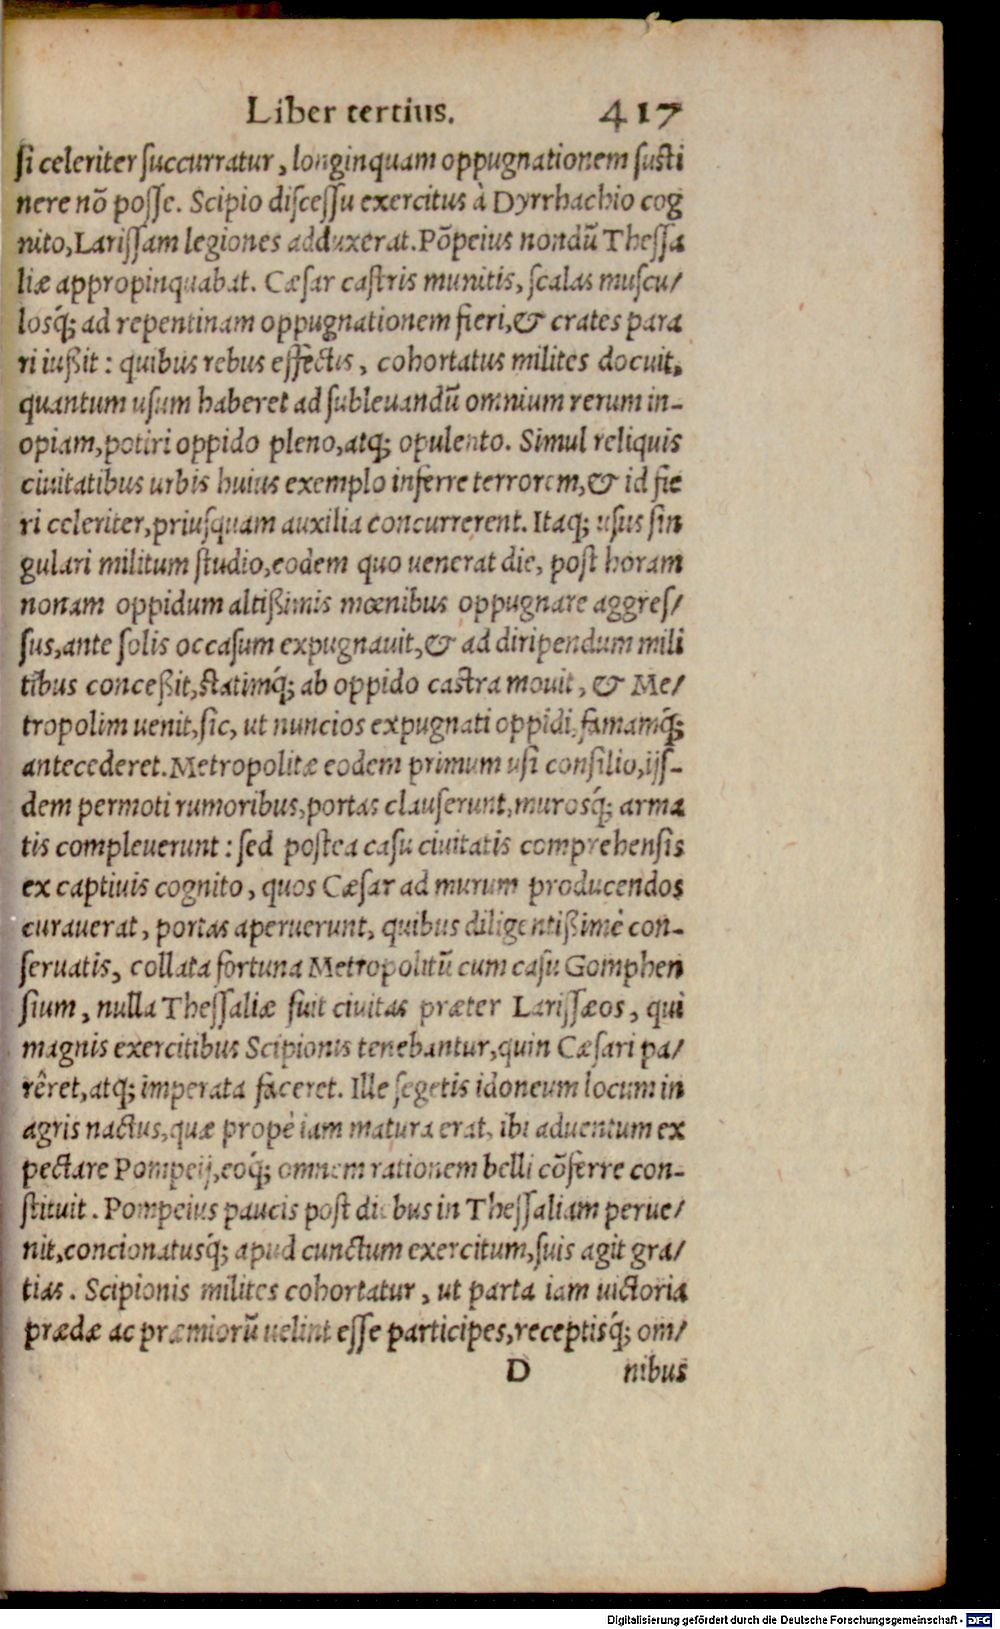 Liber tertius. 417
si celeriter succurratur, longinquam oppugnationem susti
nere nõ posse. Scipio discessu exercitus à Dyrrhachio cog
nito, Larissam legiones adduxerat. Põpeius nondũ Thessa
liæ appropinquabat. Cæsar castris munitis, scalas muscu/
losq́; ad repentinam oppugnationem fieri, & crates para
ri iußit: quibus rebus effectis, cohortatus milites docuit,
quantum usum haberet ad subleuandũ omnium rerum in-
opiam, potiri oppido pleno, atq; opulento. Simul reliquis
ciuitatibus urbis huius exemplo inferre terrorem, & id fie
ri celeriter, priusquam auxilia concurrerent. Itaq; usus sin
gulari militum studio, eodem quo uenerat die, post horam
nonam oppidum altißimis mœnibus oppugnare aggres/
sus, ante solis occasum expugnauit, & ad diripendum mili
tibus conceßit, statimq́; ab oppido castra mouit, & Me/
tropolim uenit, sic, ut nuncios expugnati oppidi, famamq́;
antecederet. Metropolitæ eodem primum usi consilio, ijs-
dem permoti rumoribus, portas clauserunt, murosq́; arma
tis compleuerunt: sed postea casu ciuitatis comprehensis
ex captiuis cognito, quos Cæsar ad murum producendos
curauerat, portas aperuerunt, quibus diligentißimè con-
seruatis, collata fortuna Metropolitũ cum casu Gomphen
sium, nulla Thessaliæ fuit ciuitas præter Larissæos, qui
magnis exercitibus Scipionis tenebantur, quin Cæsari pa/
rêret, atq; imperata faceret. Ille segetis idoneum locum in
agris nactus, quæ propè iam matura erat, ibi aduentum ex
pectare Pompeij, eoq́; omnem rationem belli cõferre con-
stituit. Pompeius paucis post diebus in Thessaliam perue/
nit, concionatusq́; apud cunctum exercitum, suis agit gra/
tias. Scipionis milites cohortatur, ut parta iam uictoria
prædæ ac præmiorũ uelint esse participes, receptisq́; om/
D nibus
Digitalisierung gefördert durch die Deutsche Forschungsgemeinschaft - DFG